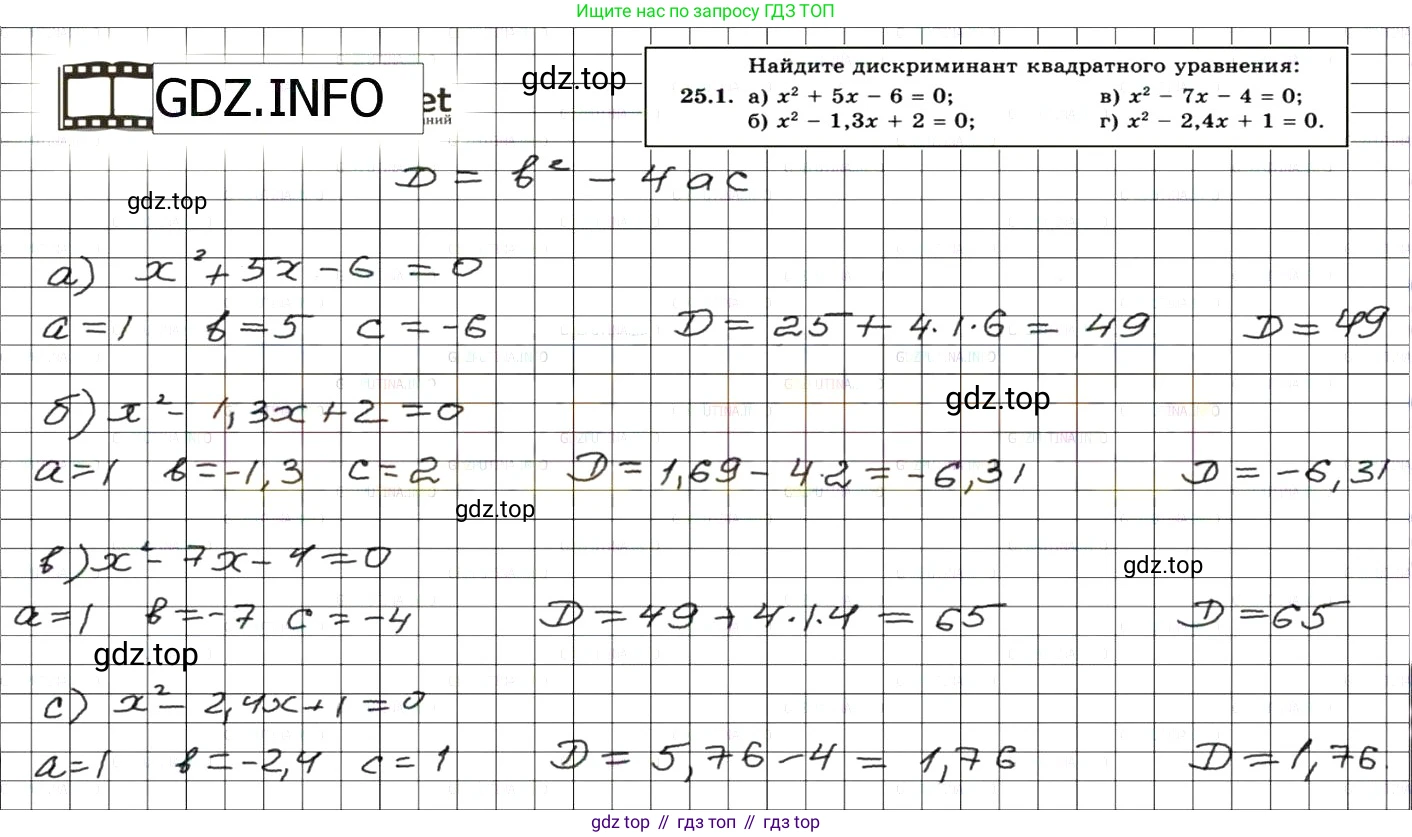 Ищите нас по запросу ГДЗ ТОП
GDZ.INFO
et
аний
gdz.top
Найдите дискриминант квадратного уравнения:
25.1. а) x² + 5x − 6 = 0; в) x² − 7x − 4 = 0;
б) x² − 1,3x + 2 = 0; г) x² − 2,4x + 1 = 0.
D = в² − 4ac
gdz.top
а) x² + 5x − 6 = 0
a = 1 в = 5 c = −6 D = 25 + 4·1·6 = 49 D = 49
б) x² − 1,3x + 2 = 0
gdz.top
a = 1 в = −1,3 c = 2 D = 1,69 − 4·2 = −6,31 D = −6,31
gdz.top
в) x² − 7x − 4 = 0
gdz.top
a = 1 в = −7 c = −4 D = 49 + 4·1·4 = 65 D = 65
gdz.top
с) x² − 2,4x + 1 = 0
a = 1 в = −2,4 c = 1 D = 5,76 − 4 = 1,76 D = 1,76.
gdz top // гдз топ // гдз top